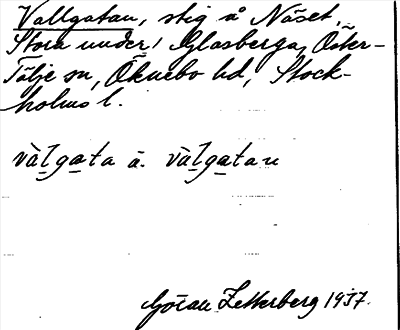 Vallgatan, stig å Näset,
Stora under Glasberga, Öster-
Tälje sn, Öknebo hd, Stock-
holms l.
vàlgata ä. vàlgatan
Göran Zetterberg 1937.